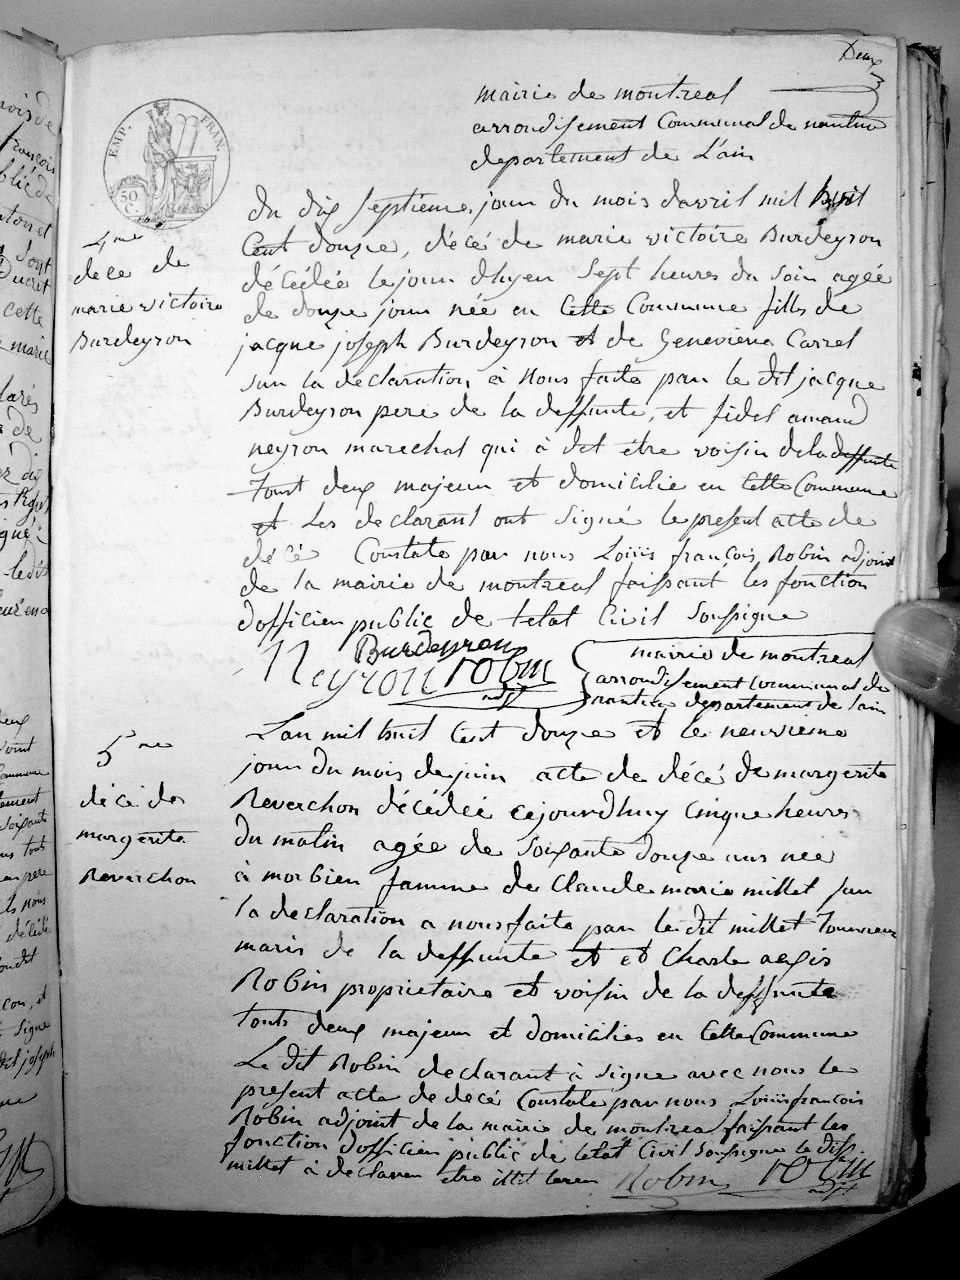 Deux
mairie de montreal
arrondissement Communal de nantua
departement de L'ain
EMP. FRAN.
50 C.
4me
dece de
marie victoire
Burdeyron
du dix septieme jour du mois davril mil huit
Cent douze, décé de marie victoire Burdeyron
décédée le jour dhyer Sept heures du soir agée
de douze jour née en Cette Commune fille de
jacque joseph Burdeyron et de Genevieva Carrel
sur la declaration à nous faite par le dit jacque
Burdeyron pere de la deffunte, et fidel amand
neyron marechal qui à dit être voisin de la deffunte
tout deux majeur et domicilie en Cette Commune
et Les declarant ont Signé le present acte de
décé Constate par nous Loüis françois Robin adjoint
de la mairie de montreal faissant les fonction
dofficier public de letat Civil Soussigne
Burdeyron
Neyron robin
adjt
mairie de montreal
arrondissement communal de
nantua departement de lain
5me
décé de
margerite
Reverchon
Lan mil huit Cent douze et le neuvieme
jour du mois de juin acte de décé de margerite
Reverchon décédée cejourdhuy Cinque heures
du matin agée de Soixante douze ans née
à morbien famme de Claude marie millet sur
la declaration a nous faite par le dit millet
maris de la deffunte et et Charle
Robin proprietaire et voisin de la deffunte
touts deux majeur et domicilies en Cette Commune
Le dit Robin declarant à Signe avec nous le
present acte de decé Constaté par nous Loüis françois
Robin adjoint de la mairie de montreal faissant les
fonction dofficier public de letat Civil Soussigne le dit
millet à declarer etre illit Robin robin
adjt